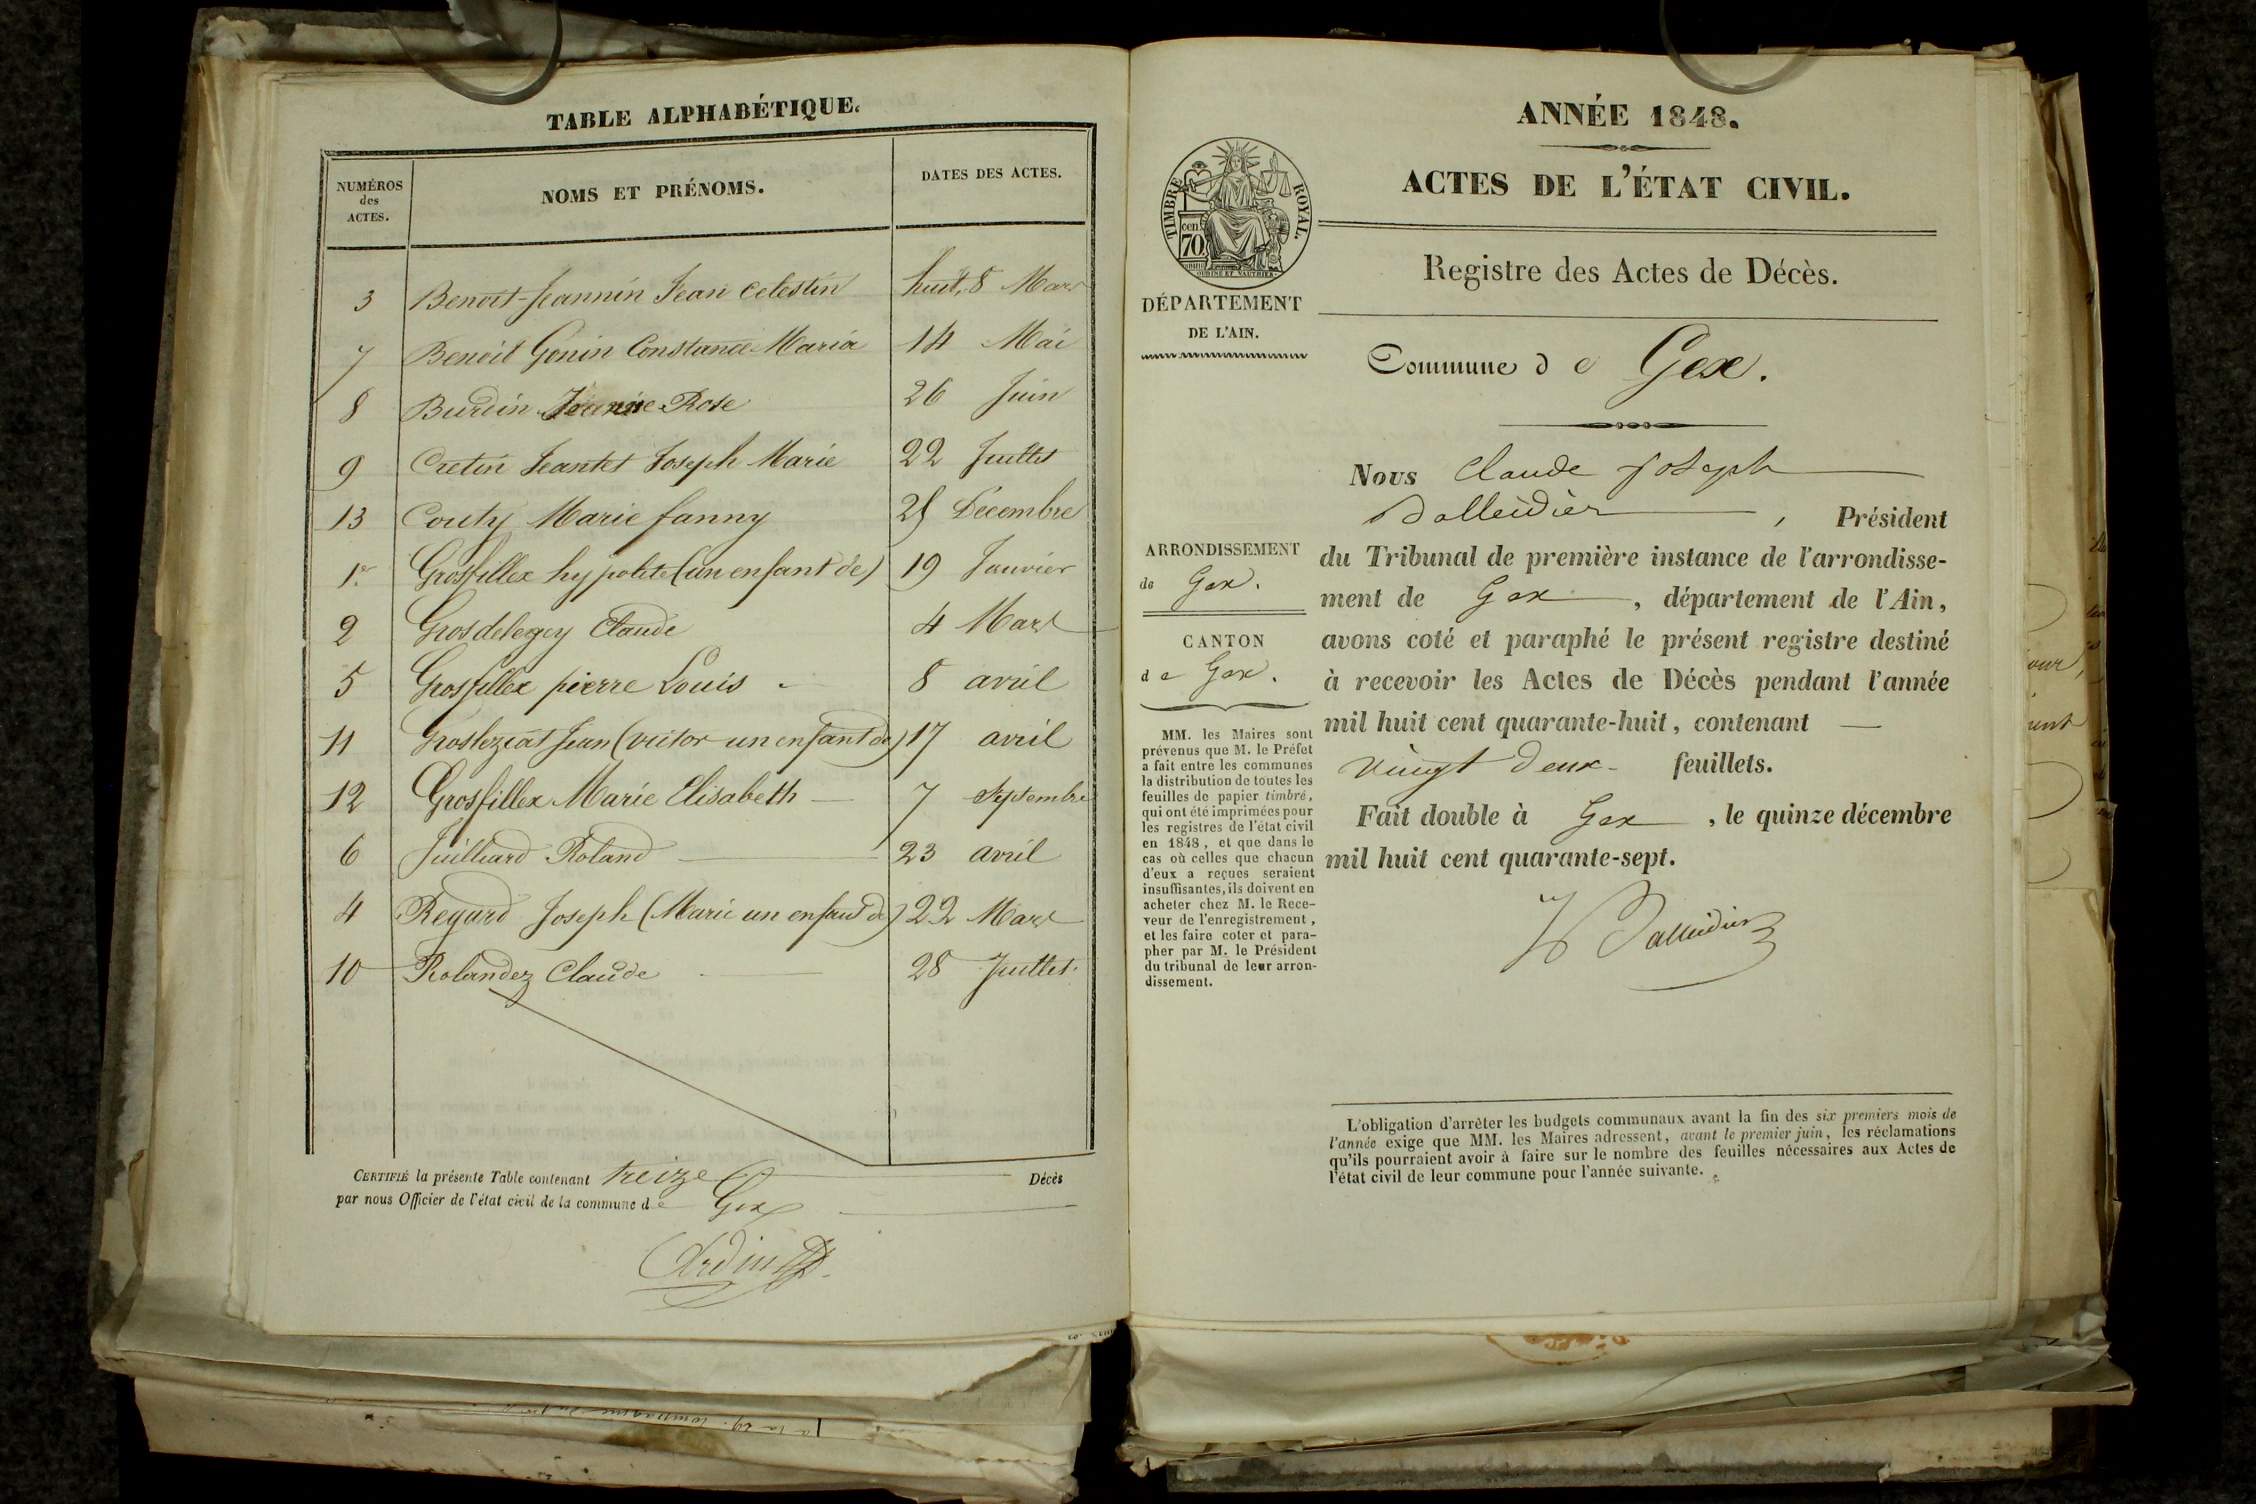 TABLE ALPHABÉTIQUE.
NUMÉROS
des
ACTES.
NOMS ET PRÉNOMS.
DATES DES ACTES.
3 Benoit-Jeannin Jean Celestin huit, 8 Mars
7 Benoit Gonin Constance Maria 14 Mai
8 Burdin Jeanne Rose 26 Juin
9 Cretin Jeantet Joseph Marie 22 Juillet
13 Couty Marie fanny 25 Décembre
1er Grosfillex hypolite (un enfant de) 19 Janvier
2 Grosdelegey Claude 4 Mars
5 Grosfillex pierre Louis 8 avril
11 Jean (victor un enfant de) 17 avril
12 Grosfillex Marie Elisabeth 7 Septembre
6 Juilliard Roland 23 avril
4 Regard Joseph (Marie un enfant de) 22 Mars
10 Rolandez Claude 28 Juillet
CERTIFIÉ la présente Table contenant treize Décès
par nous Officier de l'état civil de la commune de Gex
ANNÉE 1848.
ACTES DE L'ÉTAT CIVIL.
TIMBRE ROYAL.
cen. 70
Registre des Actes de Décès.
DÉPARTEMENT
DE L'AIN.
Commune de Gex.
Nous Claude Joseph
Balleidier, Président
du Tribunal de première instance de l'arrondisse-
ment de Gex, département de l'Ain,
avons coté et paraphé le présent registre destiné
à recevoir les Actes de Décès pendant l'année
mil huit cent quarante-huit, contenant
vingt deux feuillets.
Fait double à Gex, le quinze décembre
mil huit cent quarante-sept.
Balleidier
ARRONDISSEMENT
de Gex.
CANTON
de Gex.
MM. les Maires sont
prévenus que M. le Préfet
a fait entre les communes
la distribution de toutes les
feuilles de papier timbré,
qui ont été imprimées pour
les registres de l'état civil
en 1848, et que dans le
cas où celles que chacun
d'eux a reçues seraient
insuffisantes, ils doivent en
acheter chez M. le Rece-
veur de l'enregistrement,
et les faire coter et para-
pher par M. le Président
du tribunal de leur arron-
dissement.
L'obligation d'arrêter les budgets communaux avant la fin des six premiers mois de
l'année exige que MM. les Maires adressent, avant le premier juin, les réclamations
qu'ils pourraient avoir à faire sur le nombre des feuilles nécessaires aux Actes de
l'état civil de leur commune pour l'année suivante.